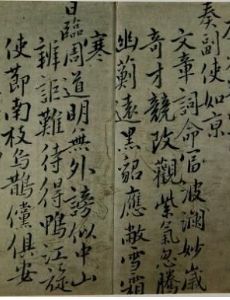 奉副使如京
文章詞命富波瀾妙歲
奇才競改觀紫氣忽騰
幽薊遠黑貂應敝雪霜
寒
日臨周道明無外謗似中山
辨詎難待得鴨江旋
使節南枝烏鵲儻俱安